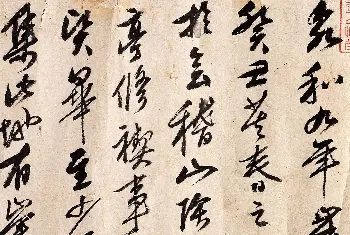 永和九年歲
癸丑莫春之
於会稽山陰
亭脩禊事
賢畢至少
集此地有崇